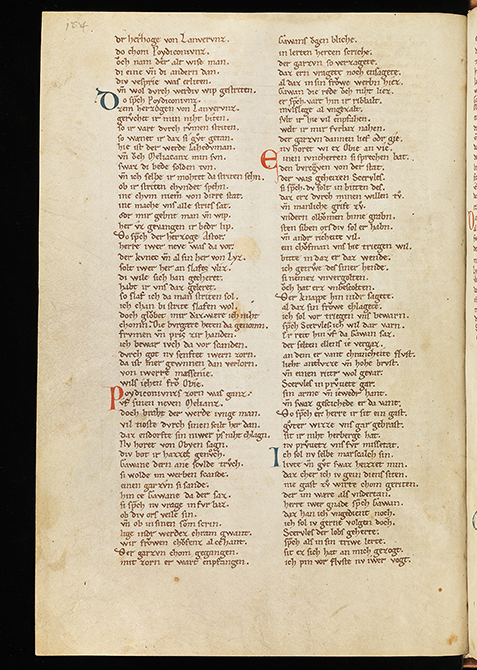 der herzoge von Lanveruns.
do chom Poydiconivnz.
di eine vn di andern dan.
div vesprie was erliten.
vn wol durch werdiv wip gestriten.
Do sprch Poydiconivnz.
zem herzogen von Lanveruns.
gervchet ir min niht biten.
so ir vart durch rvmen striten.
so wænet ir daz si gvt getan.
hie ist der werde
vn der Meliacanz min svn.
swaz di bede solden tvn.
vn ich selbe ir mohtet da striten sehn.
ob ir striten chvndet spehn.
ine chvm niem von dirre stat.
ine mache vns alle strites sat.
oder mir gebnt man vn wip.
her vz gevangen ir beder lip.
Do sprch der herzoge Astor.
herre iwer neve was da vor.
der kvnec vn al sin her von Lyz.
solt iwer her an slafes vliz.
di wile sich han gecheret.
habt ir vns daz geleret.
so slaf ich da man striten sol.
ich chan bi strite slafen wol.
doch glovbt mir daz wært ich niht
chomn. die bvrgære heten da genomn.
frvmen vn pris zir handen.
ich bewart ivch da vor scanden.
dvrch got nv senftet iwern zorn.
da ist mer gewnnen dan verlorn.
von iwerre massenie.
wils iehen frov Obie.
Poydiconivnzs zorn was ganz.
vf sinen neven Melianz.
doch brahte der werde ivnge man.
vil tioste durch sinen scilt her dan.
daz endorfte sin niwer pris niht chlagn.
Nv horet von Obyen sagn.
div bot ir hazzes genvch.
Gawane dern ane scvlde trvch.
si wolde im werben scande.
einen garzvn si sande.
hin ze Gawane da der saz.
si sprch nv vrage in fvrbaz.
ob div ors veile sin.
vn ob in sinen som scrin.
lige indr werdez chram gwant.
wir frowen chovfenz al cehant.
Der garzvn chom gegangen.
mit zorn er wart enpfangen.
Gawans ogen bliche.
in lerten herzen scriche.
der garzvn so verzagete.
daz ern vragete noch ensagete.
al daz in sin frowe werben hiez.
Gawan die rede och niht liez.
er sprch vart hin ir ribbalt.
mvlslege al vngezalt.
svlt ir hie vil enpfahen.
welt ir mir fvrbaz nahen.
der garzvn dannen lief oder gie.
nv horet wi ez Obie an vie.
Einen ivncherren si sprechen bat.
den bvrcgven von der stat.
der was geheizen Scervles.
si sprch dv solt in bitten des.
daz erz dvrch minen willen tv.
vn manliche grife zv.
vndern olbomen bime grabn.
sten siben ors div sol er habn.
vn andr richeite vil.
ein chofman vns hie triegen wil.
bitte in daz er daz wende.
ich getrwe des siner hende.
si nemez vnvergolten.
och hat erz vnbescolten.
Der knappe hin nidr sagete.
al daz sin frowe chlagete.
ich sol vor triegen vns bewarn.
sprch Scervles ich wil dar varn.
er reit hin vf da Gawan saz.
der selten ellens ie vergaz.
an dem er vant chrancheite flvst.
lieht antlvtze vn hohe brvst.
vn einen rittr wol gevar.
Scervles in prvuete gar.
sin arme vn ietwedr hant.
vn swaz gescichede er da vant.
Do sprch er herre ir sit ein gast.
gvter wizze vns gar gebrast.
sit ir niht herberge hat.
nv prvuetz vns fvr missetat.
Ich sol nv selbe marscalch sin.
livte vn gvt swaz heizzet min.
daz cher ich iv gein dienstes siten.
nie gast zv wirte chom geriten.
der im wære als vndertan.
herre iwer gnade sprch Gawan.
daz han ich vngedient noch.
ich sol iv gerne volgen doch.
Scervles der lobs geherte.
sprch als in sin triwe lerte.
sit ez sich hat an mich gezogt.
ich pin vor flvste nv iwer vogt.